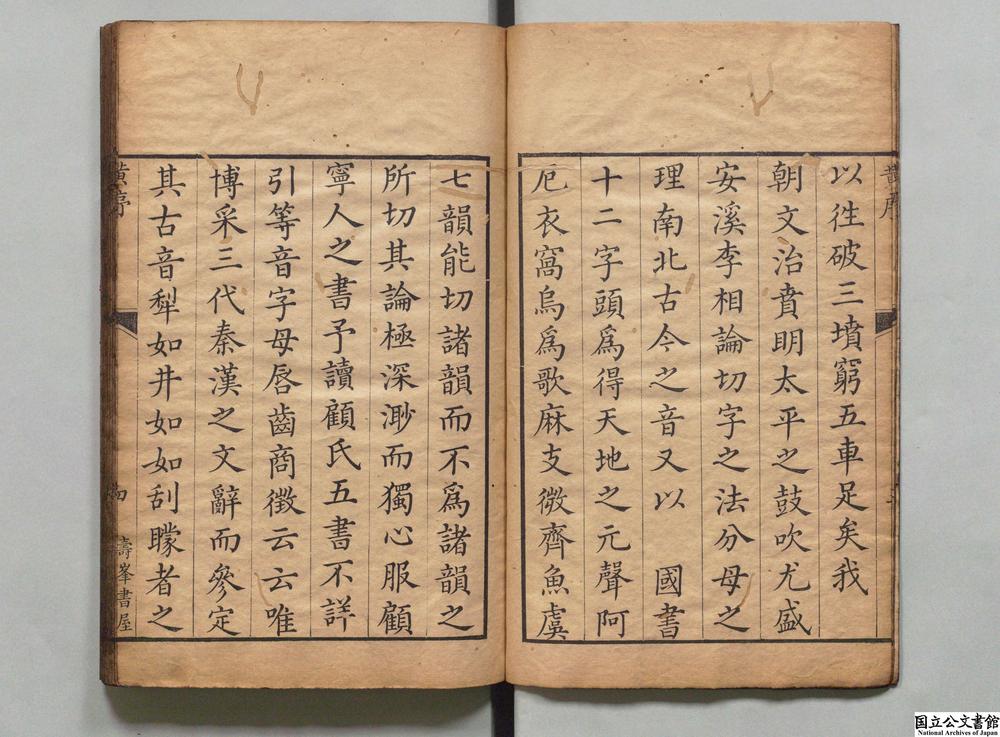 以徃破三墳窮五車足矣我
朝文治賁明太平之鼓吹尤盛
安溪李相論切字之法分母之
理南北古今之音又以　國書
十二字頭爲得天地之元聲阿
厄衣窩烏爲歌麻支微齊魚虞
七韻能切諸韻而不爲諸韻之
所切其論極深渺而獨心服顧
寧人之書予讀顧氏五書不詳
引等音字母唇齒商徵云云唯
博采三代秦漢之文辭而參定
其古音犁如井如如刮矇者之
黃序
四
壽峯書屋
国立公文書館
National Archives of Japan